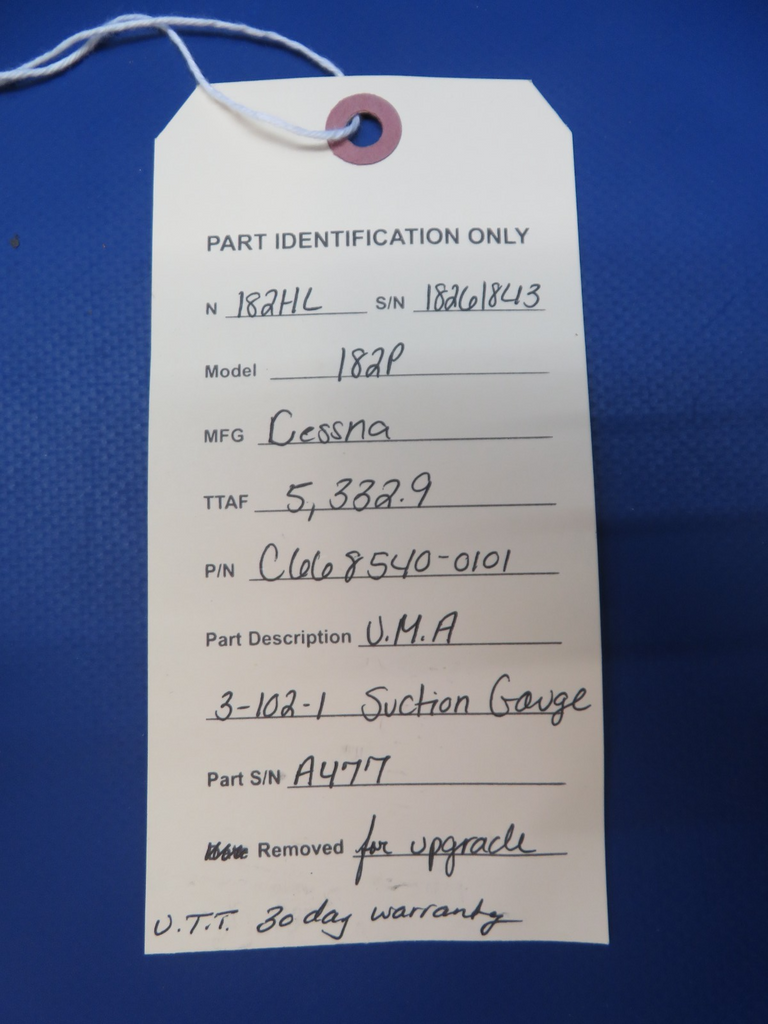 PART IDENTIFICATION ONLY
N 182HL S/N 18261843
Model 182P
MFG Cessna
TTAF 5,332.9
P/N C668540-0101
Part Description U.M.A
3-102-1 Suction Gauge
Part S/N A477
Removed for upgrade
U.T.T. 30 day warranty